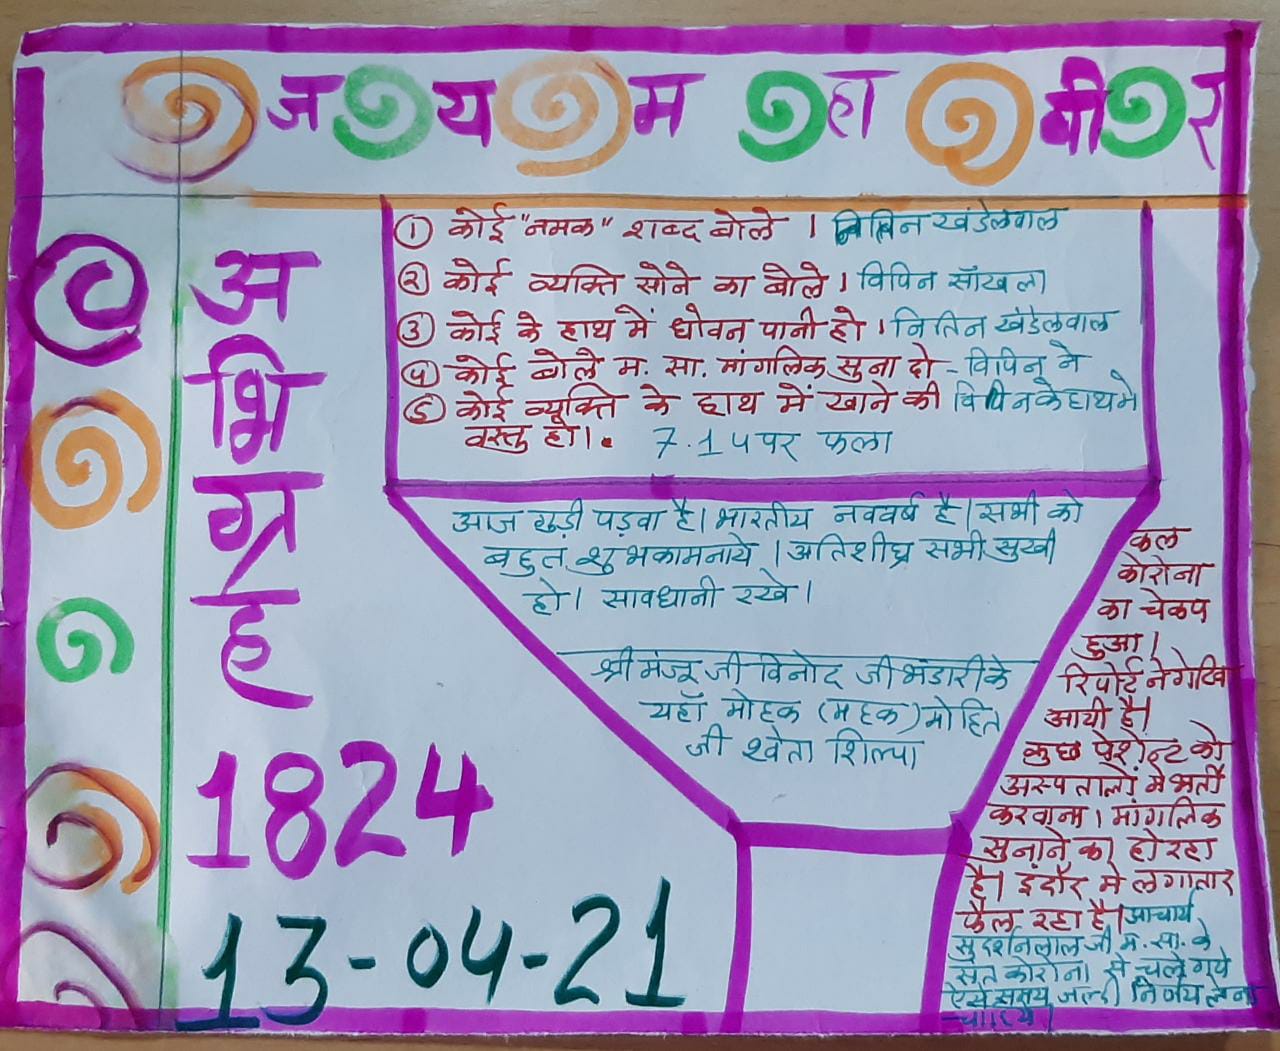 जय महावीर
अभिग्रह
1824
13-04-21
① कोई "नमक" शब्द बोले । विपिन खंडेलवाल
② कोई व्यक्ति सोने का बोले। विपिन साँखला
③ कोई के हाथ में धोवन पानी हो । नितिन खंडेलवाल
④ कोई बोले म. सा. मांगलिक सुना दो - विपिन ने
⑤ कोई व्यक्ति के हाथ में खाने की विपिन के हाथ मे
वस्तु हो।. 7.14 पर फला
आज गुड़ी पड़वा है। भारतीय नववर्ष है। सभी को
बहुत शुभकामनाये । अतिशीघ्र सभी सुखी
हो। सावधानी रखे।
श्री मंजू जी विनोद जी भंडारी के
यहाँ मोहक (महक) मोहित
जी श्वेता शिल्पा
कल
कोरोना
का चेकप
हुआ।
रिपोर्ट नेगेटिव
आयी है।
कुछ पेशेन्ट को
अस्पतालों मे भर्ती
करवाना। मांगलिक
सुनाने का हो रहा
है। इंदौर मे लगातार
फैल रहा है। आचार्य
सुदर्शनलाल जी म. सा. के
संत कोरोना से चले गये
ऐसे समय जल्दी निर्णय लेना
चाहिये।